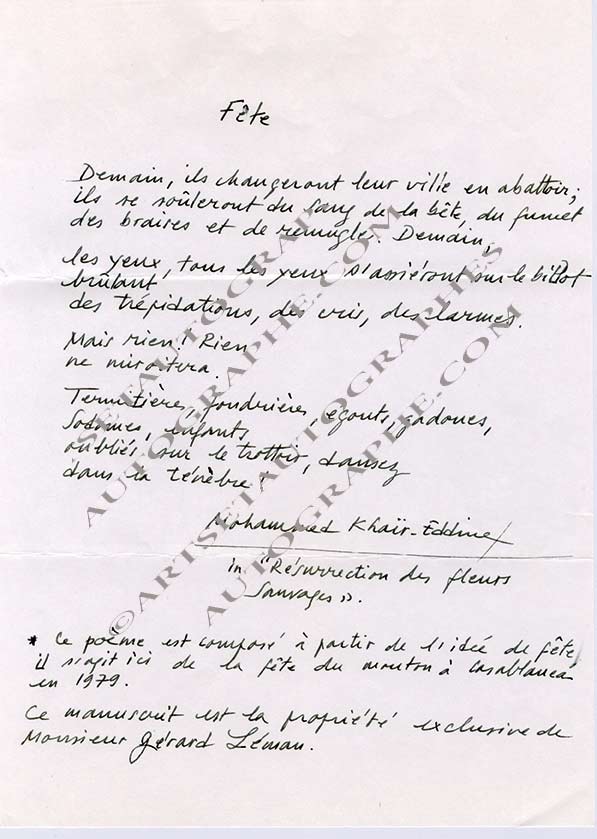 Fête
Demain, ils changeront leur ville en abattoir;
ils se soûleront du sang de la bête, du fumet
des braises et de remugle. Demain,
les yeux, tous les yeux s'assiéront sur le billot
brûlant
des trépidations, des cris, des larmes.
Mais rien! Rien
ne miroitera.
Termitières, fondrières, égouts, gadoues,
Sodomes, enfants
oubliés sur le trottoir, dansez
dans la ténèbre!
Mohammed Khaïr-Eddine
in "Résurrection des fleurs
Sauvages".
* Ce poème est composé à partir de l'idée de fête
il s'agit ici de la fête du mouton à Casablanca
en 1979.
Ce manuscrit est la propriété exclusive de
Monsieur Gérard Léman.
©ARTSETAUTOGRAPHES
AUTOGRAPHE.COM